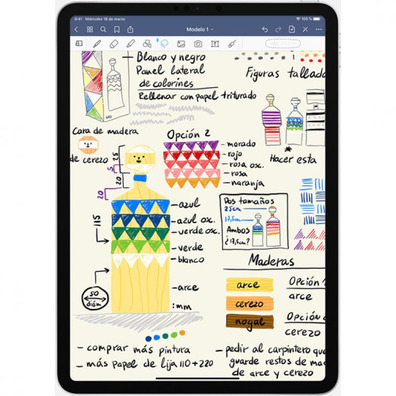 9:41 Miércoles 18 de marzo
100 %
Modelo 1
Blanco y negro
Panel lateral
de colorines
Rellenar con papel triturado
Figuras tallada
Cara de madera
de cerezo
25
5
20
20
115
50
diám
Opción 2
morado
rojo
rosa osc.
rosa
naranja
azul
azul osc.
verde osc.
verde
blanco
arce
:mm
Hacer esta
Dos tamaños
23cm
17,5cm
Ambos
¿17,5cm?
Maderas
arce
cerezo
nogal
Opción
arce
Opción
cerezo
- comprar más pintura
- más papel de lija 110+220
- pedir al carpintero que
guarde restos de ma
de arce y cerezo